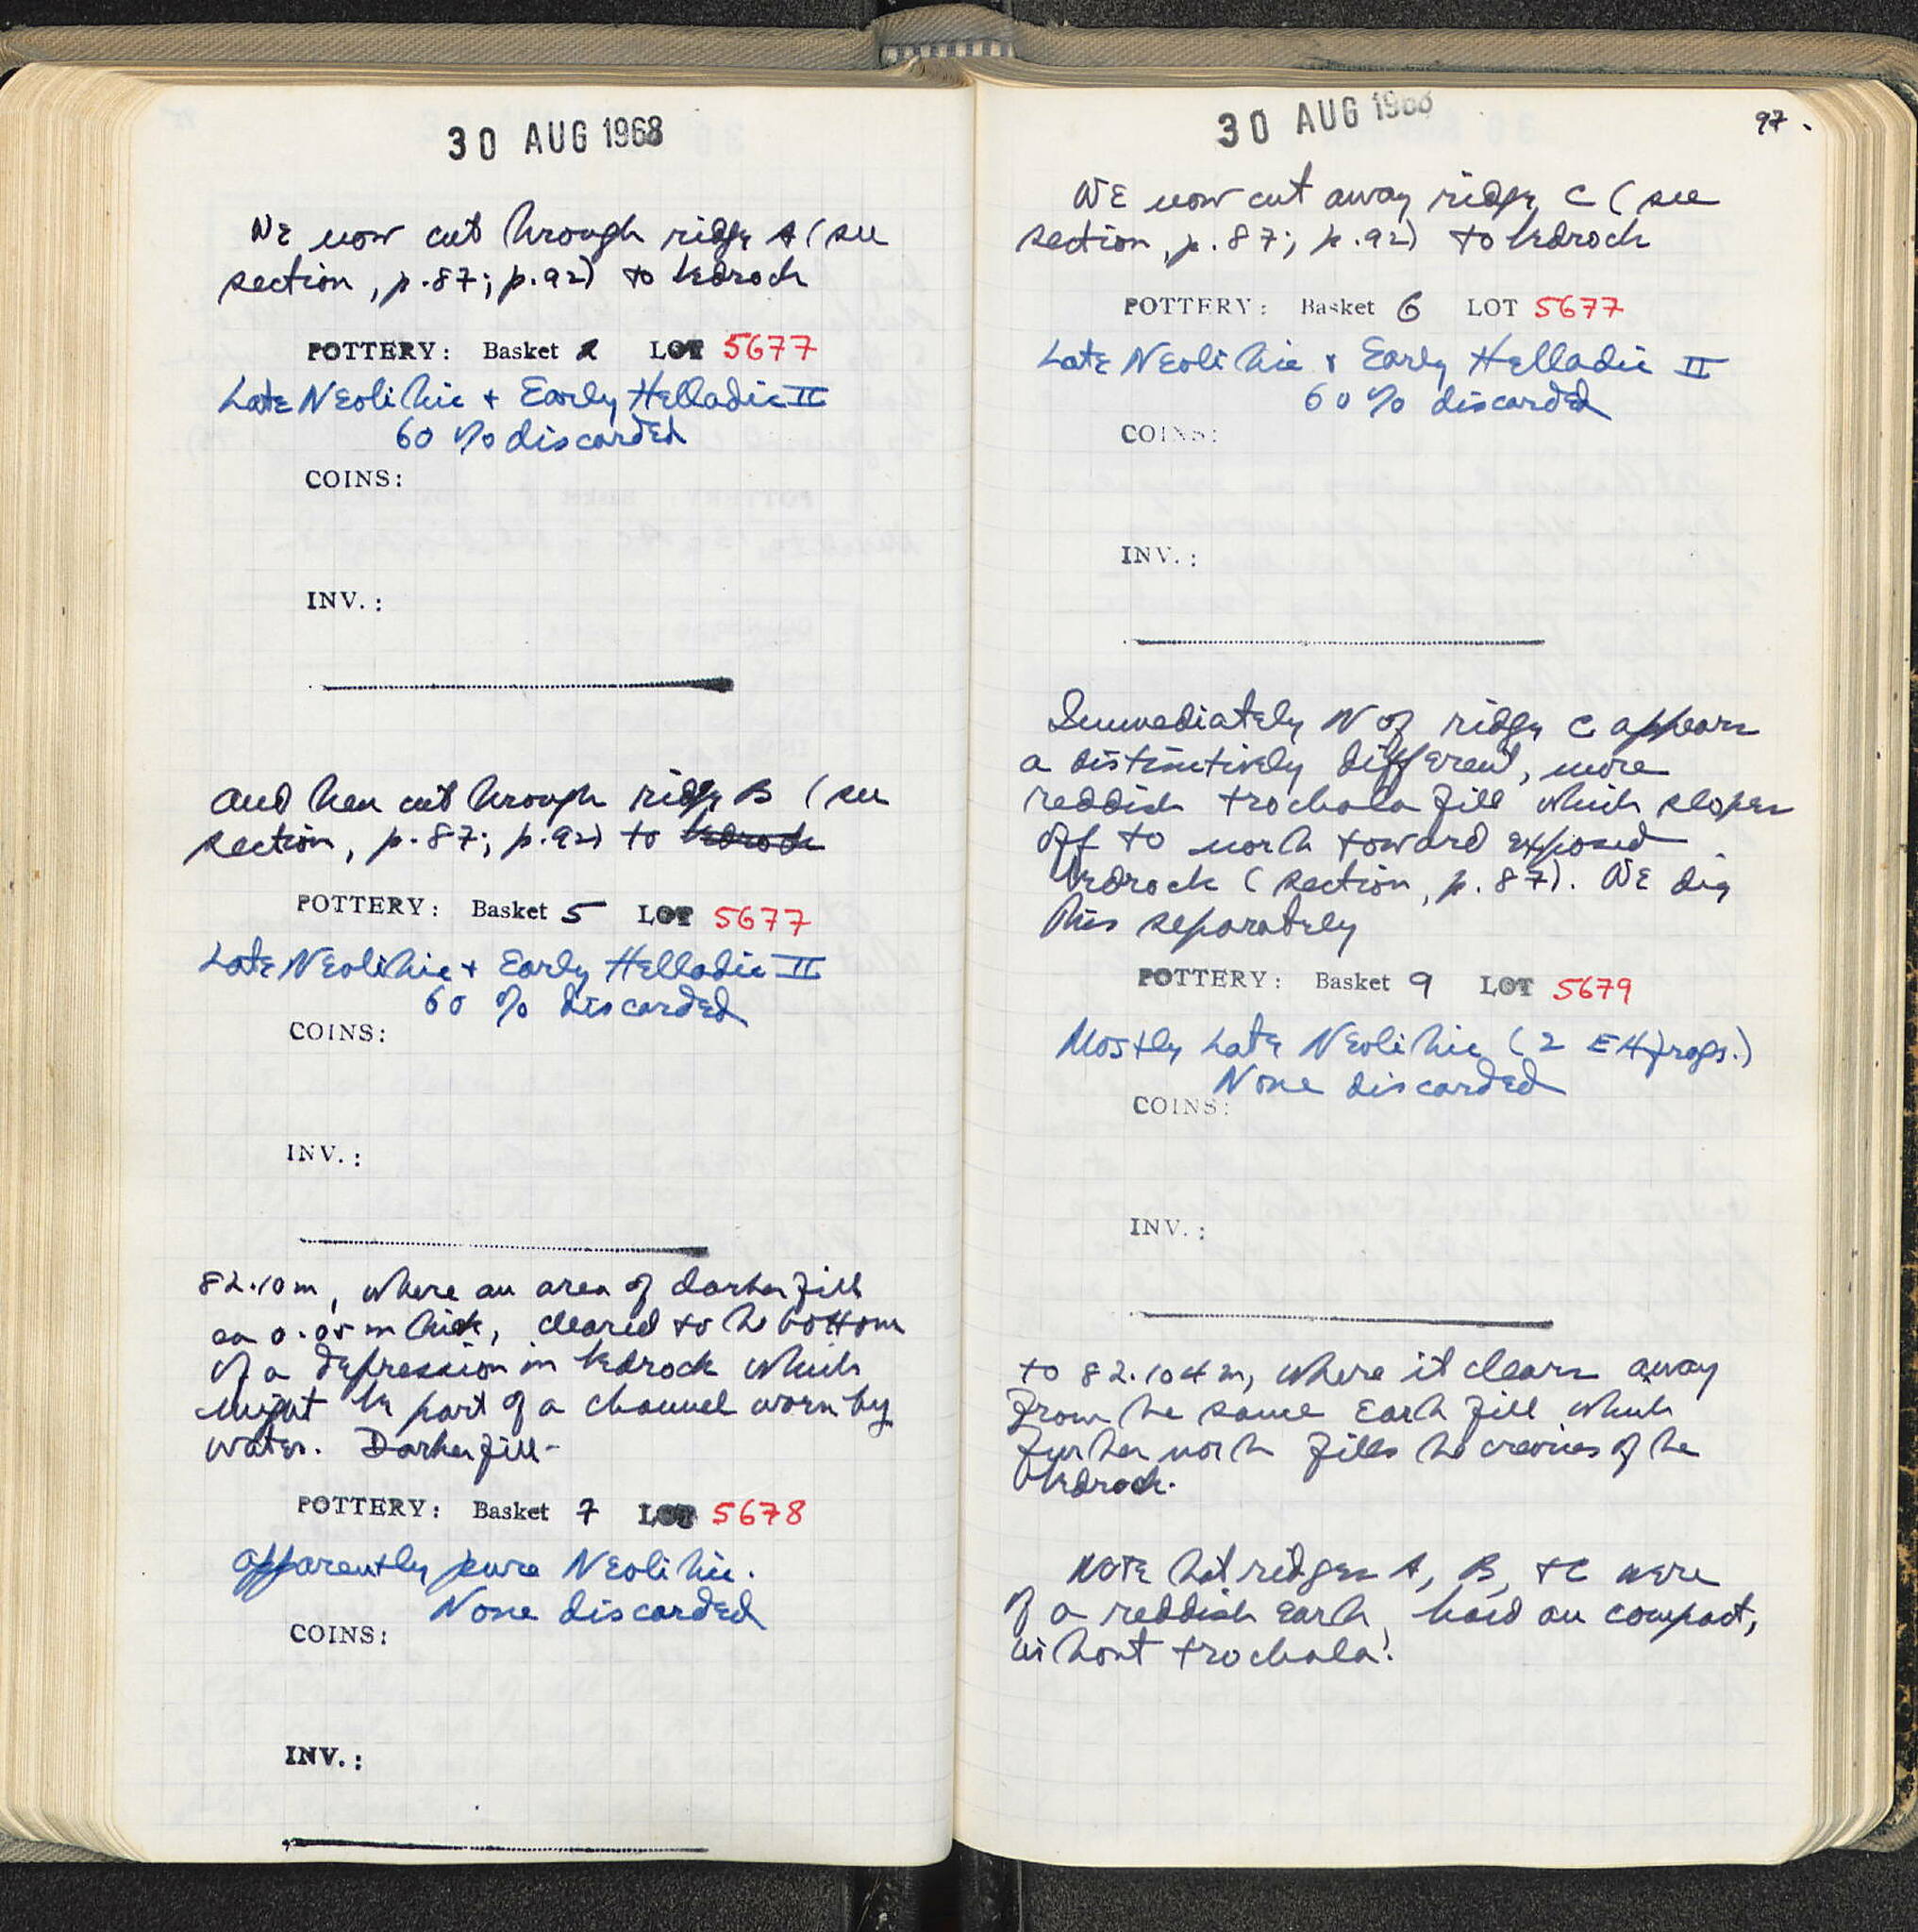 30 AUG 1968
We now cut through ridge A (see
section, p.87; p.92) to bedrock
POTTERY: Basket 2 LOT 5677
Late Neolithic + Early Helladic II
60 % discarded
COINS:
INV.:
and then cut through ridge B (see
section, p.87; p.92) to bedrock
POTTERY: Basket 5 LOT 5677
Late Neolithic + Early Helladic II
60 % discarded
COINS:
INV.:
82.10 m, where an area of darker fill
ca 0.05 m thick, cleared to the bottom
of a depression in bedrock which
might be part of a channel worn by
water. Darker fill-
POTTERY: Basket 7 LOT 5678
Apparently pure Neolithic.
None discarded
COINS:
INV.:
30 AUG 1968
97.
We now cut away ridge C (see
section, p.87; p.92) to bedrock
POTTERY: Basket 6 LOT 5677
Late Neolithic + Early Helladic II
60 % discarded
COINS:
INV.:
Immediately N of ridge C appears
a distinctively different, more
reddish trochala fill which slopes
off to north toward exposed
bedrock (section, p.87). We dig
this separately
POTTERY: Basket 9 LOT 5679
Mostly Late Neolithic (2 EH frags.)
None discarded
COINS:
INV.:
to 82.104 m, where it clears away
from the same earth fill which
further north fills the crevices of the
bedrock.
Note that ridges A, B, + C were
of a reddish earth, hard an compact,
without trochala!